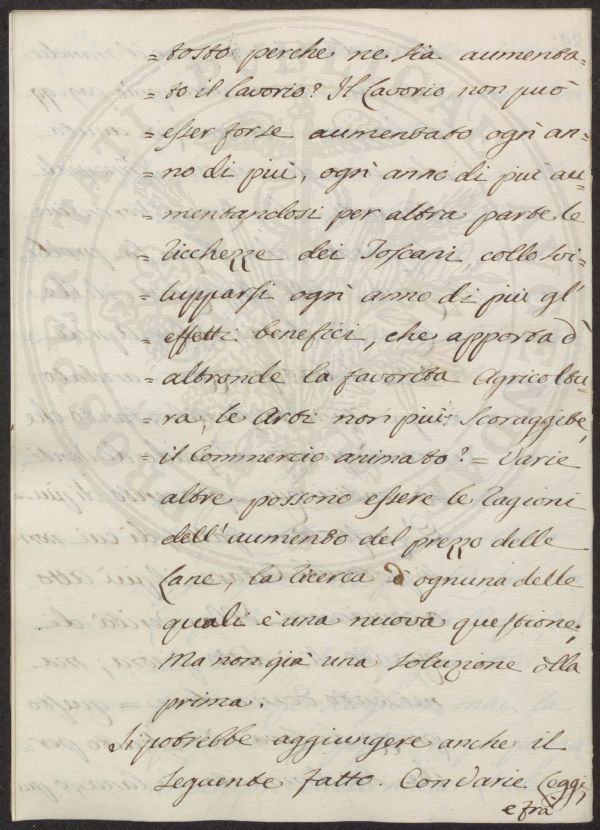 = tosto perche ne sia aumenta-
= to il lavorio? Il lavorio non può
= esser forse aumentato ogni an-
= no di più, ogni anno di più au-
= mentandosi per altra parte le
= ricchezze dei Toscani collo svi-
= lupparsi ogni anno di più gl'
= effetti benefici, che apporta d'
= altronde la favorita Agricoltu-
= ra, le Arti non più scoraggite,
= il Commercio animato? = Varie
altre possono essere le ragioni
dell'aumento del prezzo delle
Lane, la ricerca d'ognuna delle
quali è una nuova questione,
Ma non già una soluzione alla
prima.
Si potrebbe aggiungere anche il
seguente fatto. Con varie Leggi,
e frà